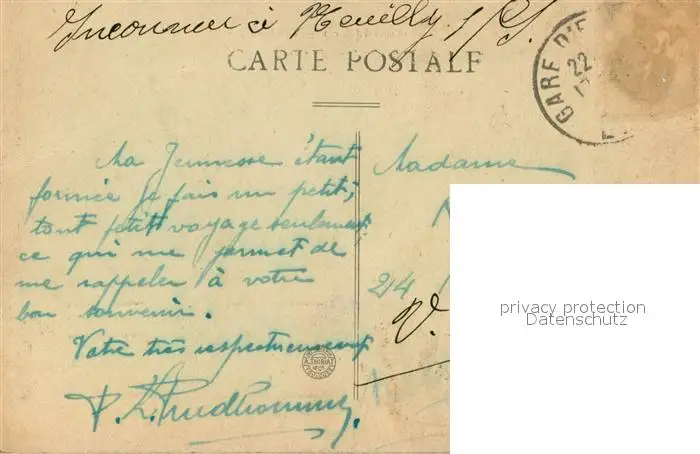 Inconnue à Neuilly s/S.
CARTE POSTALE
GARE D'E
22
Ma Jeunesse étant
formée je fais un petit,
tout petit voyage seulement
ce qui me permet de
me rappeler à votre
bon souvenir.
Votre très respectueusement
P. L. Prudhomme
A. THIRIAT
TOULOUSE
Madame
24
V.
privacy protection
Datenschutz